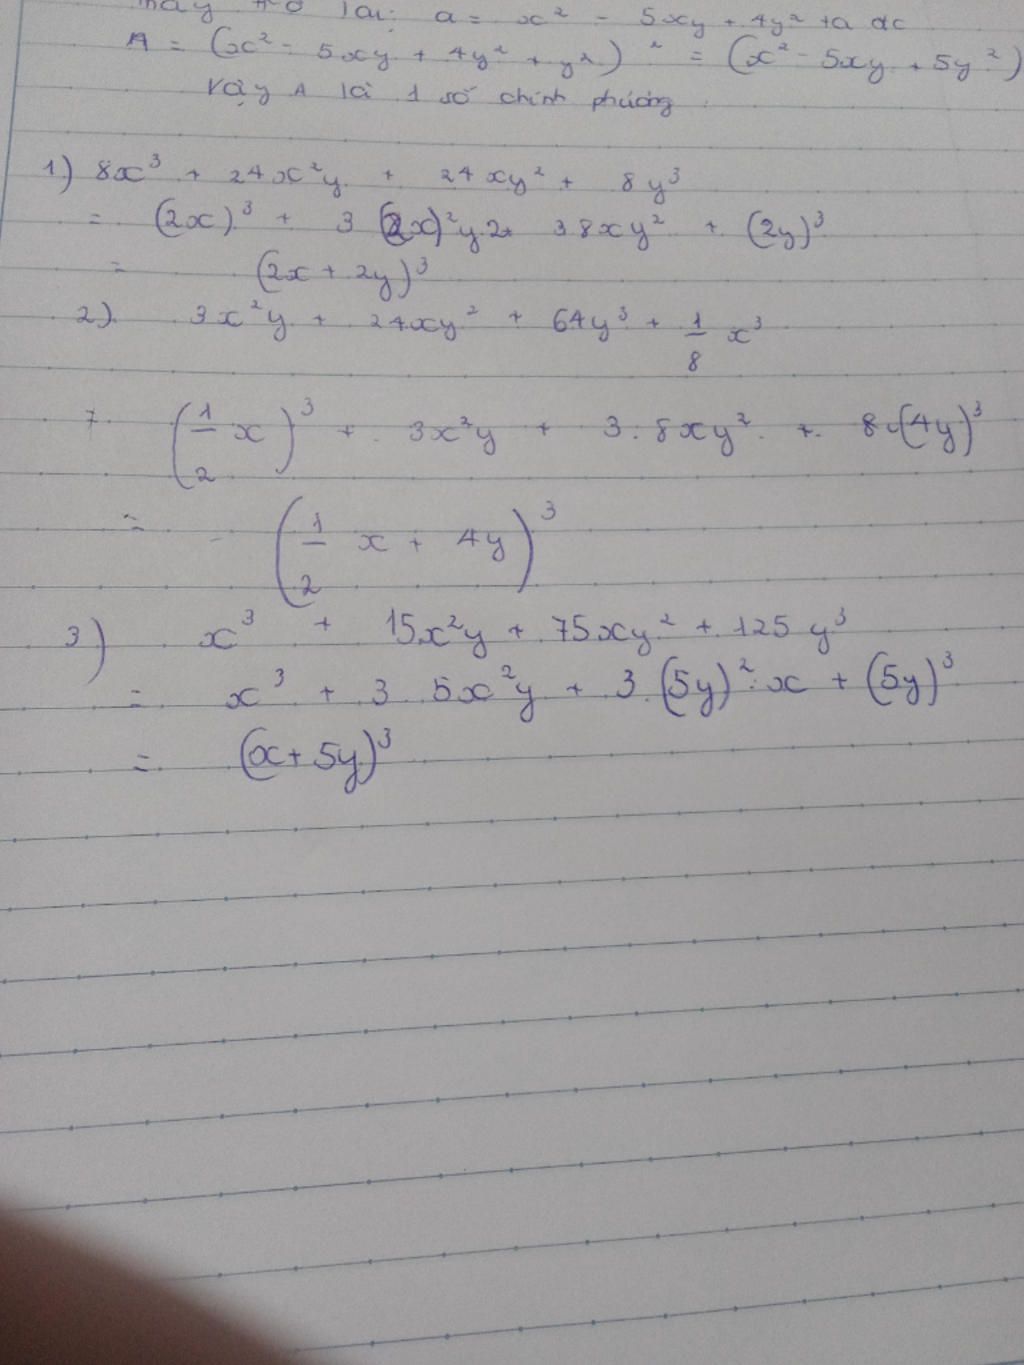 lại: a = x² - 5xy + 4y² ta dc
A = (x² - 5xy + 4y² + y²)² = (x² - 5xy + 5y²)
Vậy A là 1 số chính phương
1) 8x³ + 24x²y + 24xy² + 8y³
= (2x)³ + 3 (2x)²y.2+ 3 8xy² + (2y)³
= (2x + 2y)³
2) 3x²y + 24xy² + 64y³ + 1/8 x³
(1/2 x)³ + 3x²y + 3.8xy² + 8.(4y)³
= (1/2 x + 4y)³
3) x³ + 15x²y + 75xy² + 125y³
= x³ + 3 5x²y + 3.(5y)².x + (5y)³
= (x+5y)³